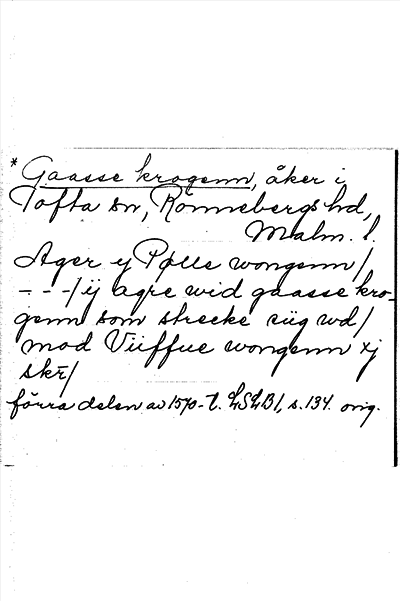 * Gaasse krogenn, åker i
Tofta sn, Rönnebergs hd,
Malm. l.
Ager y Pølle wongenn/
- - -/ij agre wid gaasse kro-
genn som strecke siig wd/
mod Viiffue wongenn xj
skr/
förra delen av 1570-t. LSLB1, s. 134. orig.